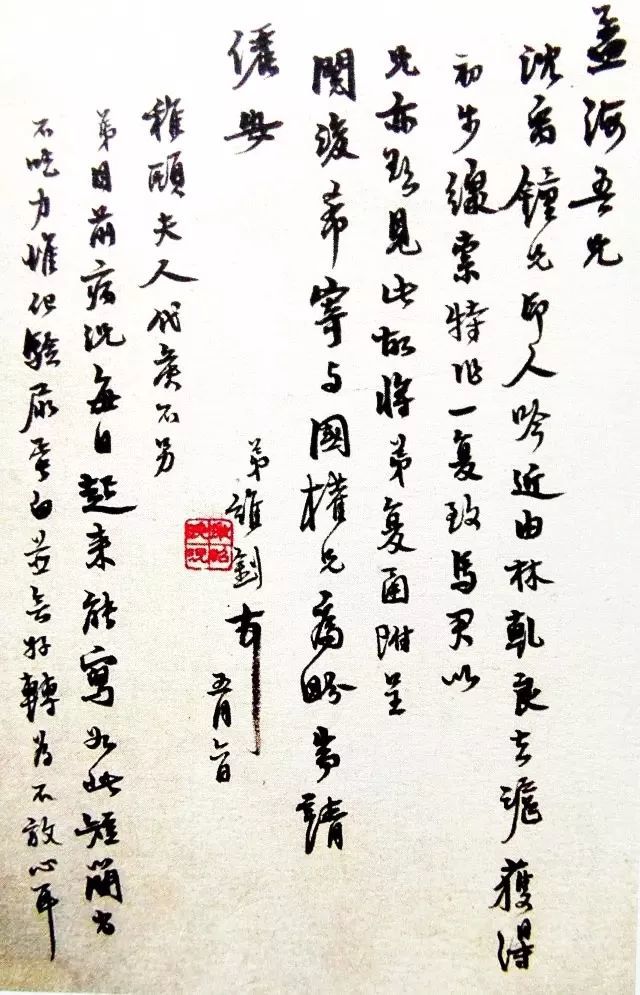 孟海吾兄
沈禹鐘先印人吟近由林乾良去滬獲得
初步線索特作一复致馬君以
兄亦欲見此故將弟复函附呈
閱後希寄与國權兄為盼專請
儷安
弟維釗頓
五月六日
稚頤夫人代矦不另
弟目前病況每日起來能寫如此短簡尚
不吃力惟但驗尿蛋白並無好轉為不放心耳